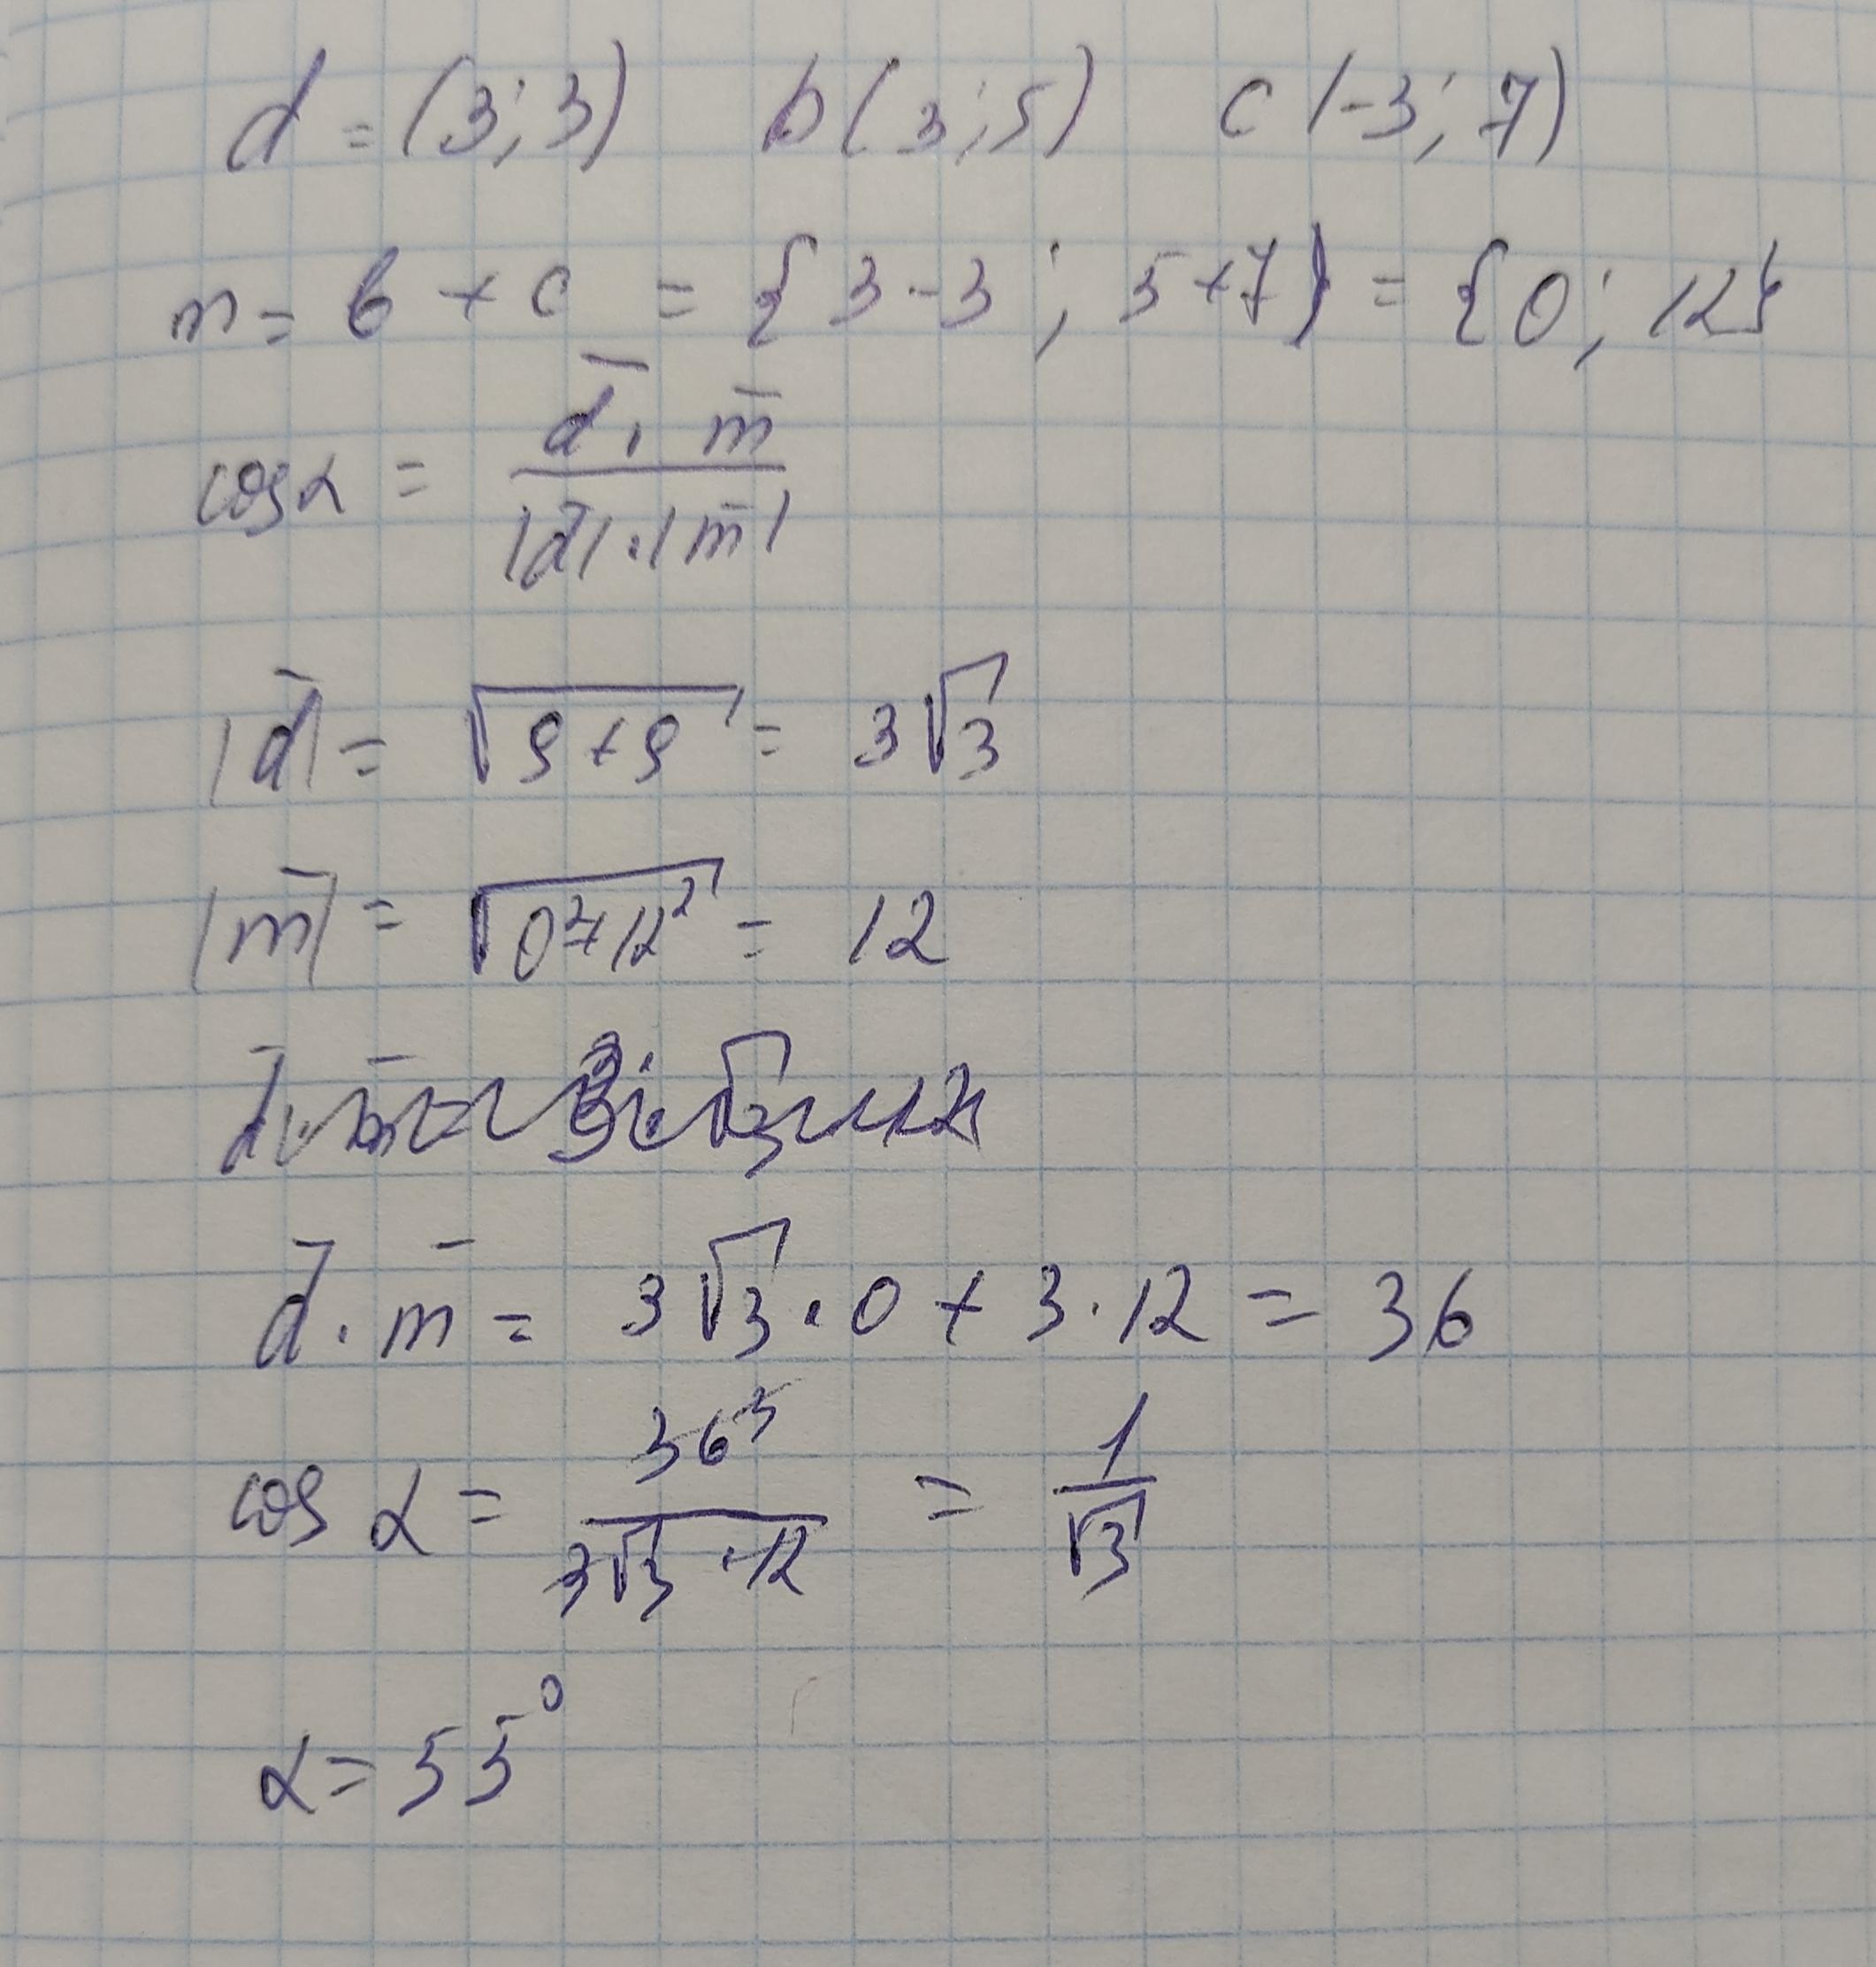 d = (3; 3) b(3; 5) c(-3; 7)
m = b + c = {3 - 3; 5 + 7} = {0; 12}
cos α = (d̅ · m̅) / (|d̅| · |m̅|)
|d̅| = √(9 + 9) = 3√3
|m̅| = √(0² + 12²) = 12
d̅ · m̅ = 3√3 · 0 + 3 · 12 = 36
cos α = 36 / (3√3 · 12) = 1/√3
α = 55°